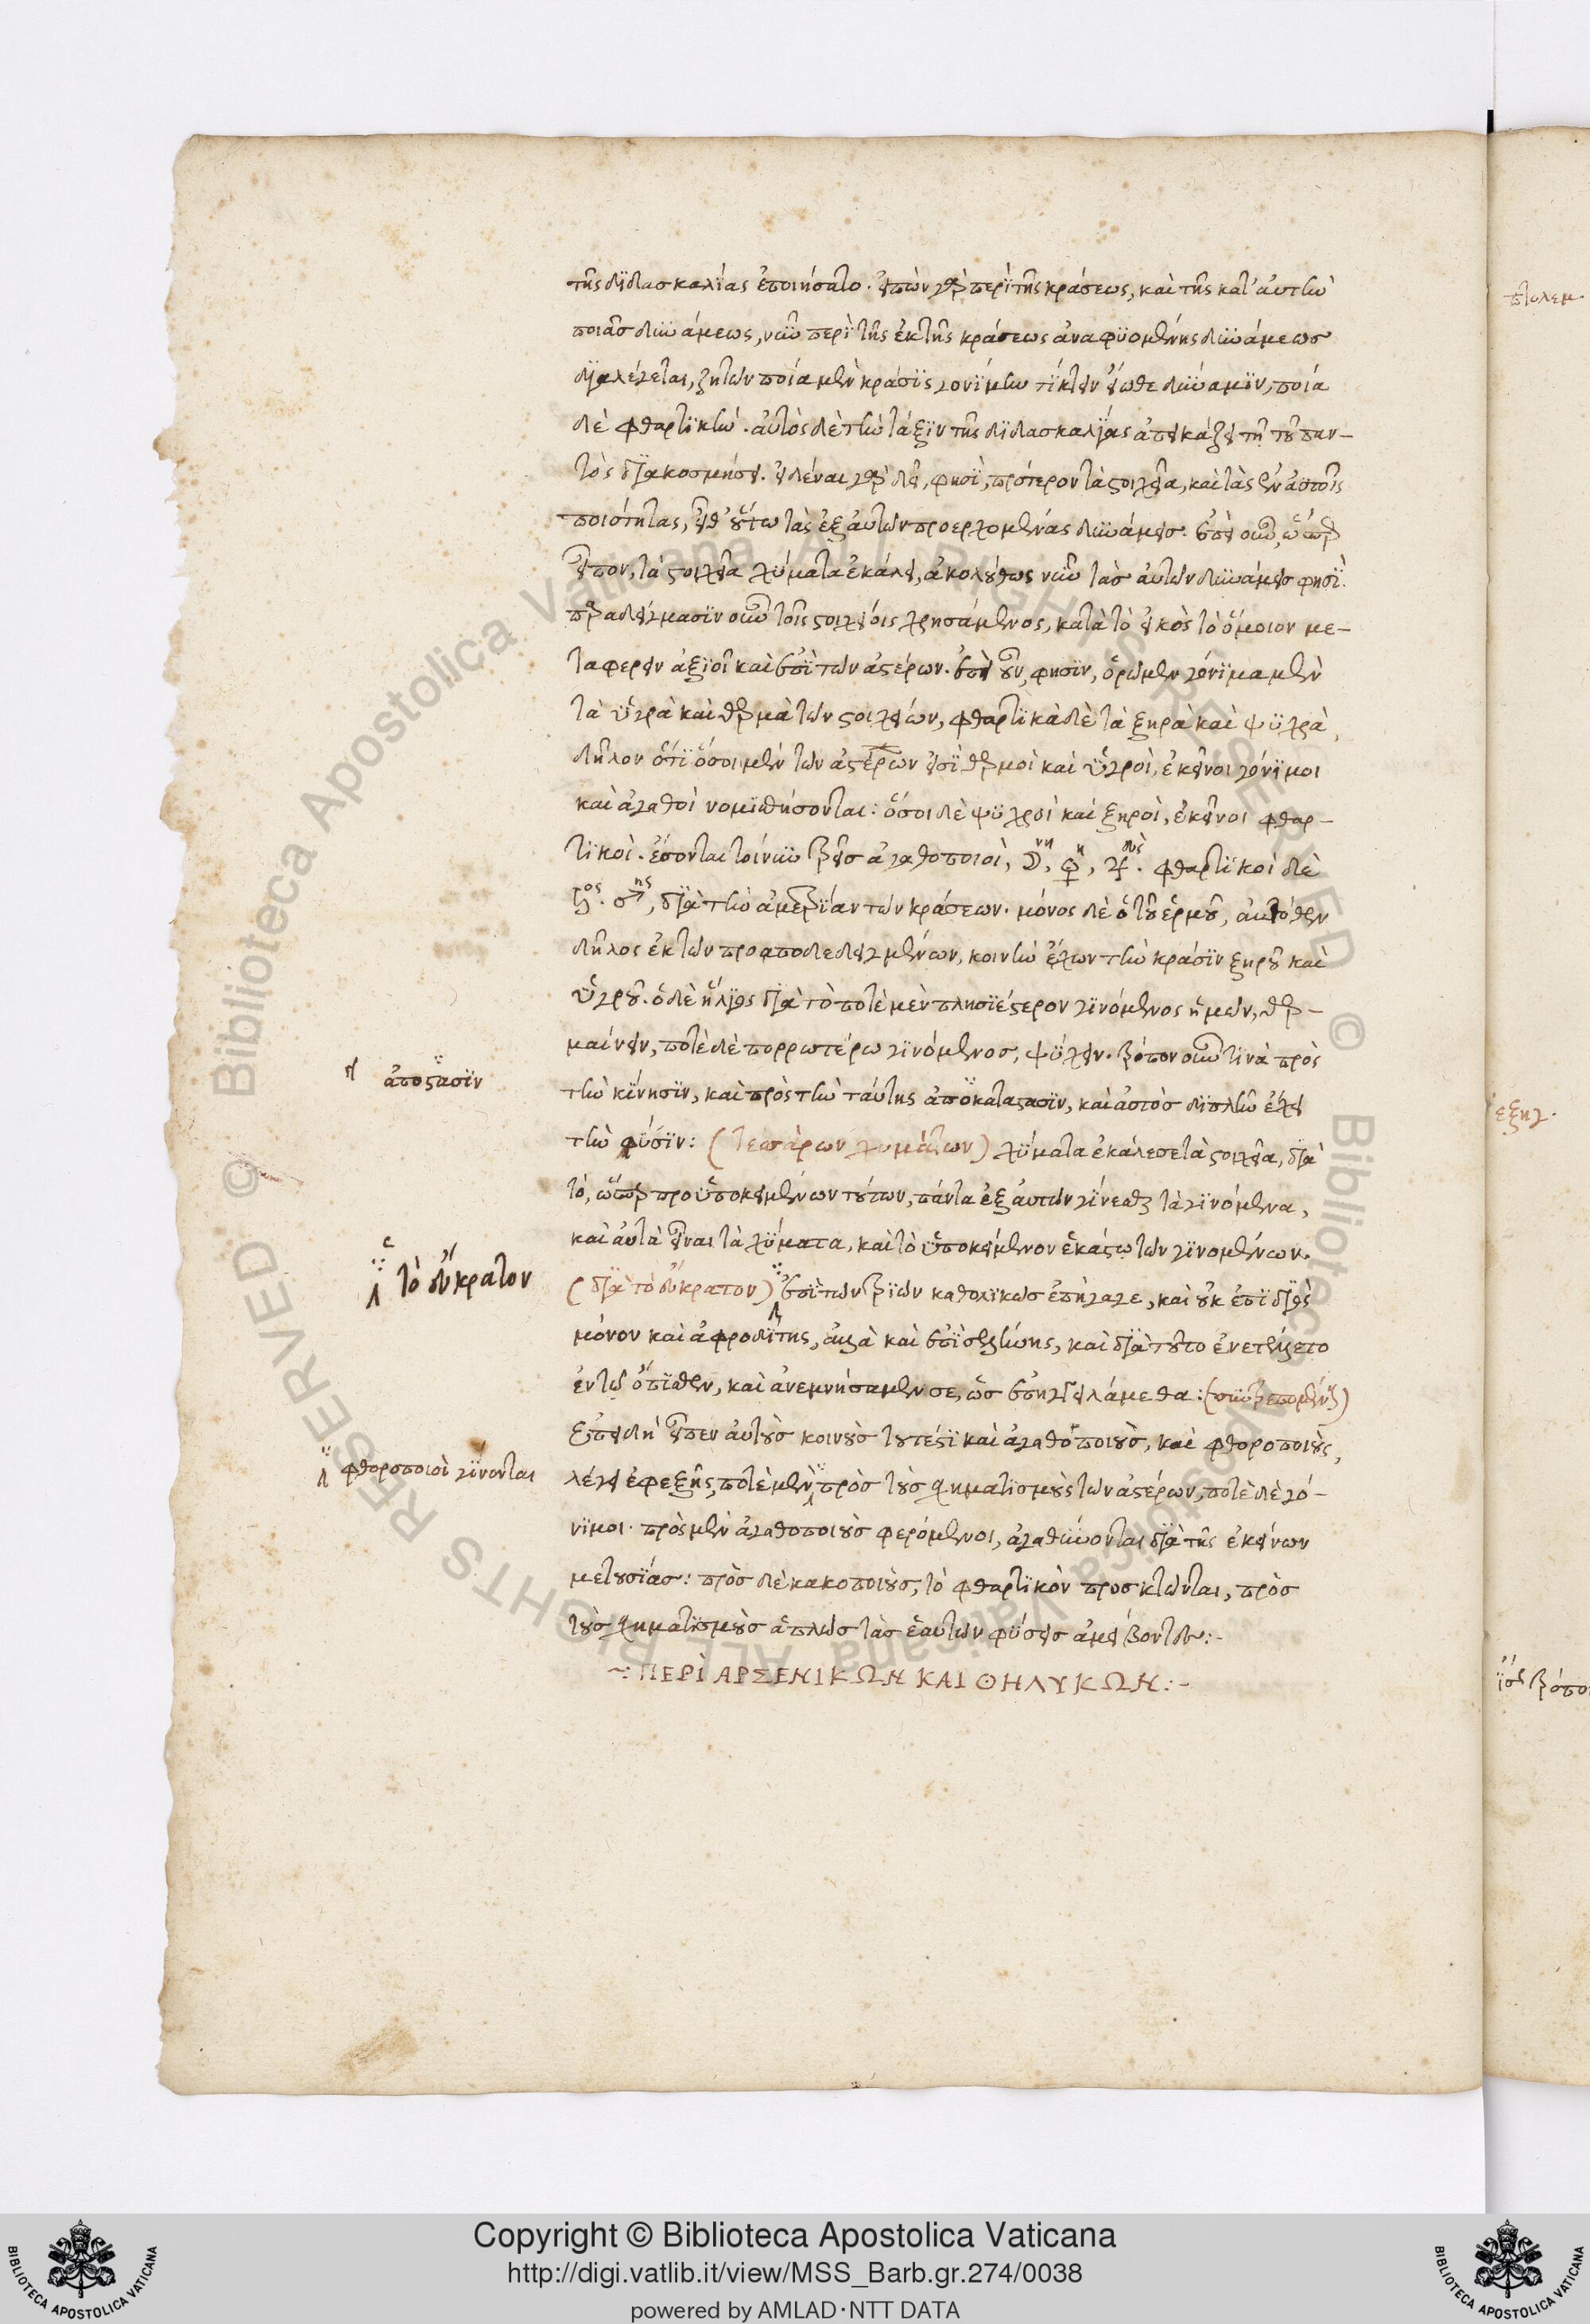 τῆς διδασκαλίας ἐποιήσατο. εἰπὼν γὰρ περὶ τῆς κράσεως, καὶ τῆς κατ' αὐτὴν
ποιᾶς δυνάμεως, νῦν περὶ τῆς ἐκ τῆς κράσεως ἀναφυομένης δυνάμεως
διαλέγεται, ζητῶν ποία μὲν κρᾶσις γονίμην τίκτειν εἴωθε δύναμιν, ποία
δὲ φθαρτικὴν. αὐτὸς δὲ τὴν τάξιν τῆς διδασκαλίας ἀπεικάζει τῇ τοῦ παν-
τὸς διακοσμήσει. εἰδέναι γὰρ δεῖ, φησὶ, πρότερον τὰ στοιχεῖα, καὶ τὰς ἐν αὐτοῖς
ποιότητας, εἶθ' οὕτω τὰς ἐξ αὐτῶν προερχομένας δυνάμεις. ἐπεὶ οὖν, ὥσπερ
εἶπον, τὰ στοιχεῖα χύματα ἐκάλει, ἀκολούθως νῦν τὰς αὐτῶν δυνάμεις φησὶ.
παραδείγμασιν οὖν τοῖς στοιχείοις χρησάμενος, κατὰ τὸ εἰκὸς τὸ ὅμοιον με-
ταφέρειν ἀξιοῖ καὶ ἐπὶ τῶν ἀστέρων. ἐπεὶ οὖν, φησὶν, ὁρῶμεν γόνιμα μὲν
τὰ ὑγρὰ καὶ θερμὰ τῶν στοιχείων, φθαρτικὰ δὲ τὰ ξηρὰ καὶ ψυχρὰ,
δῆλον ὅτι ὅσοι μὲν τῶν ἀστέρων εἰσὶ θερμοὶ καὶ ὑγροὶ, ἐκεῖνοι γόνιμοι
καὶ ἀγαθοὶ νομισθήσονται: ὅσοι δὲ ψυχροὶ καὶ ξηροὶ, ἐκεῖνοι φθαρ-
τικοὶ. ἔσονται τοίνυν τρεῖς ἀγαθοποιοὶ, ☽νη, ♀η, ♃διὸς. φθαρτικοὶ δὲ
♄ος. ♂ης, διὰ τὴν ἀμετρίαν τῶν κράσεων. μόνος δὲ ὁ τοῦ ἑρμοῦ, αὐτόθεν
δῆλος ἐκ τῶν προαποδεδειγμένων, κοινὴν ἔχων τὴν κρᾶσιν ξηροῦ καὶ
ὑγροῦ. ὁ δὲ ἥλιος διὰ τὸ ποτὲ μὲν πλησιέστερον γινόμενος ἡμῶν, θερ-
μαίνειν, ποτὲ δὲ πορρωτέρω γινόμενος, ψύχειν. τρόπον οὖν τινὰ πρὸς
τὴν κίνησιν, καὶ πρὸς τὴν ταύτης ἀποκατάστασιν, καὶ αὐτὸς διπλῆν ἔχει
ἢ ἀπόστασιν
τὴν φύσιν: (τεσσάρων χυμάτων) χύματα ἐκάλεσε τὰ στοιχεῖα, διὰ
τὸ, ὥσπερ προϋποκειμένων τούτων, πάντα ἐξ αὐτῶν γίνεσθαι τὰ γινόμενα,
καὶ αὐτὰ εἶναι τὰ χύματα, καὶ τὸ ὑποκείμενον ἑκάστῳ τῶν γινομένων.
τὸ εὔκρατον
(διὰ τὸ εὔκρατον) ἐπὶ τῶν τριῶν καθολικῶς ἐπήγαγε, καὶ οὐκ ἐπὶ διὸς
μόνον καὶ ἀφροδίτης, ἀλλὰ καὶ ἐπὶ σελήνης, καὶ διὰ τοῦτο
ἐν τῷ ὄπισθεν, καὶ ἀνεμνήσαμέν σε, ὡς ἐπηγγειλάμεθα:
ἐπειδὴ εἶπεν αὐτοὺς κοινοὺς τουτέστι καὶ ἀγαθοποιοὺς, καὶ φθοροποιοὺς,
φθοροποιοὶ γίνονται
λέγει ἐφεξῆς, ποτὲ μὲν, πρὸς τοὺς σχηματισμοὺς τῶν ἀστέρων, ποτὲ δὲ γό-
νιμοι. πρὸς μὲν ἀγαθοποιοὺς φερόμενοι, ἀγαθύνονται διὰ τῆς ἐκείνων
μετουσίας: πρὸς δὲ κακοποιοὺς, τὸ φθαρτικὸν προσκτῶνται, πρὸς
τοὺς σχηματισμοὺς ἁπλῶς τὰς ἑαυτῶν φύσεις ἀμείβονται:-
~: ΠΕΡῚ ΑΡΣΕΝΙΚΩΝ ΚΑΙ ΘΗΛΥΚΩΝ:-
πτολεμ.
ἐξηγ.
Copyright © Biblioteca Apostolica Vaticana
http://digi.vatlib.it/view/MSS_Barb.gr.274/0038
powered by AMLAD·NTT DATA
BIBLIOTECA APOSTOLICA VATICANA
BIBLIOTECA APOSTOLICA VATICANA
Biblioteca Apostolica Vaticana ALL RIGHTS RESERVED © Biblioteca Apostolica Vaticana ALL RIGHTS RESERVED ©